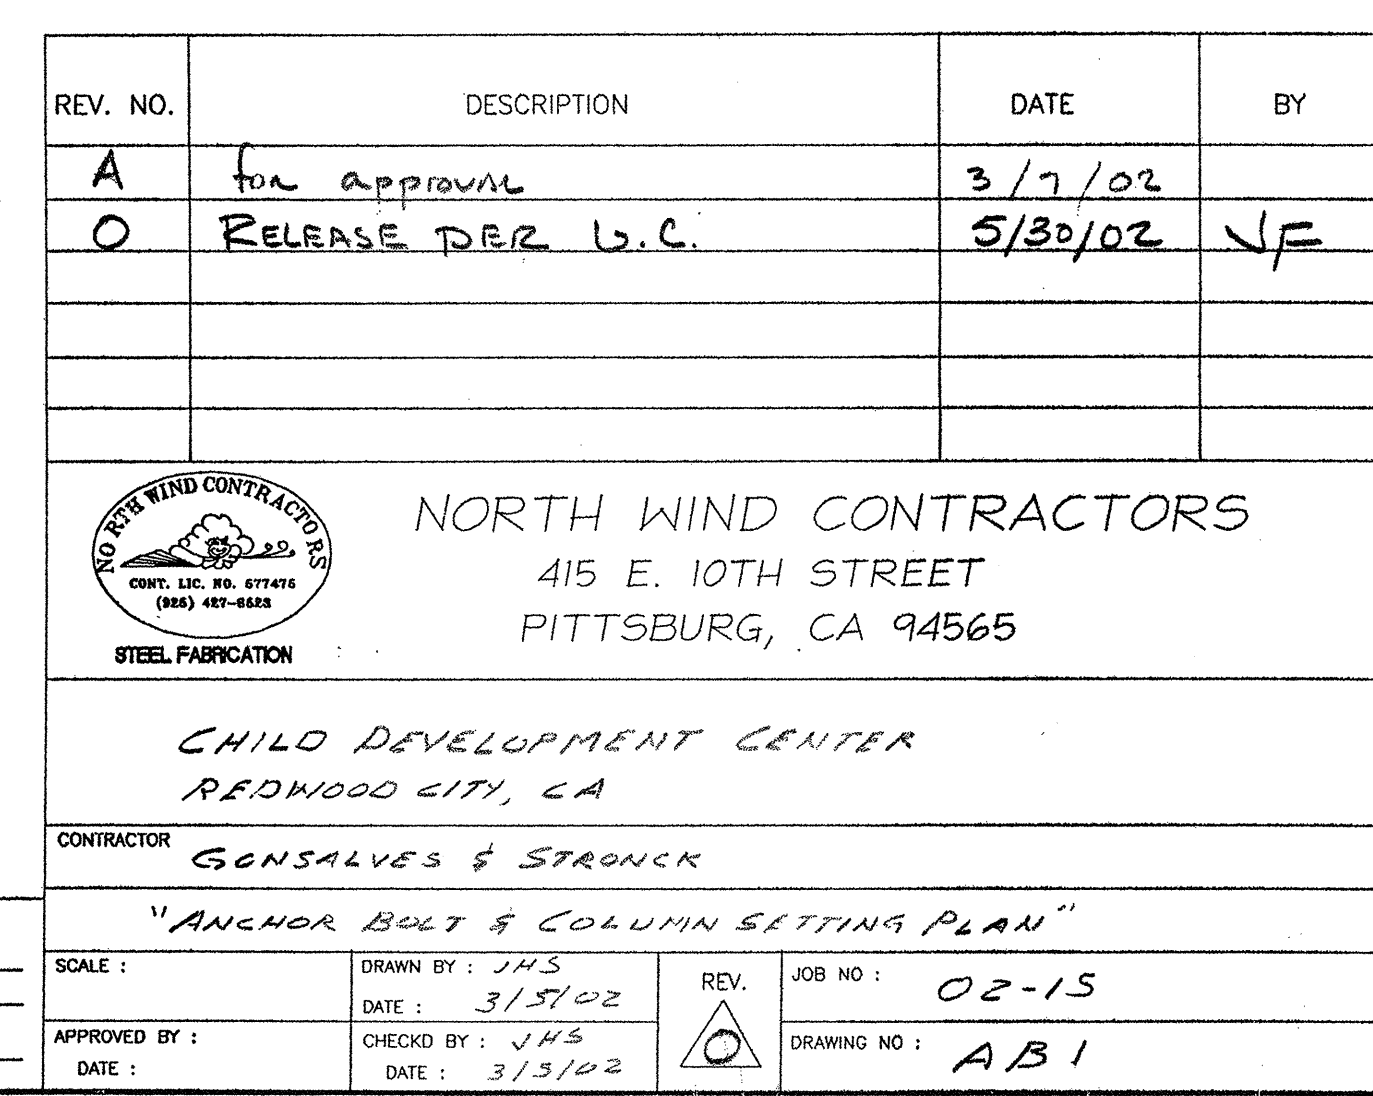 REV. NO. DESCRIPTION DATE BY
A for approval 3/7/02
0 RELEASE PER G.C. 5/30/02 VF
NORTH WIND CONTRACTORS
CONT. LIC. NO. 677476
(925) 427-8623
STEEL FABRICATION
NORTH WIND CONTRACTORS
415 E. 10TH STREET
PITTSBURG, CA 94565
CHILD DEVELOPMENT CENTER
REDWOOD CITY, CA
CONTRACTOR GONSALVES & STRONCK
"ANCHOR BOLT & COLUMN SETTING PLAN"
SCALE :
DRAWN BY : JHS
DATE : 3/5/02
APPROVED BY :
DATE :
CHECKD BY : JHS
DATE : 3/5/02
REV.
0
JOB NO : 02-15
DRAWING NO : AB1